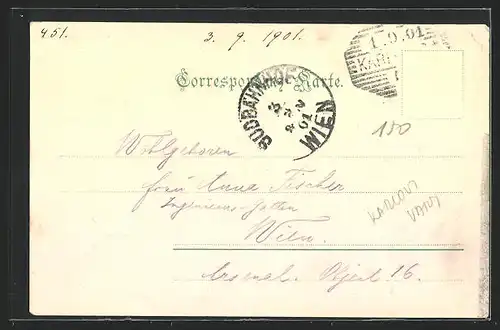 451.
3. 9. 1901.
1. 9. 01
KARL
Correspondenz-Karte.
SÜDBAHNHOF
2
9
01
WIEN
150
Wohlgeboren
Frau Anna Fischer
Ingenieurs-Gattin
KARLOVY
VARY
Wien.
Arsenal. Object 16.